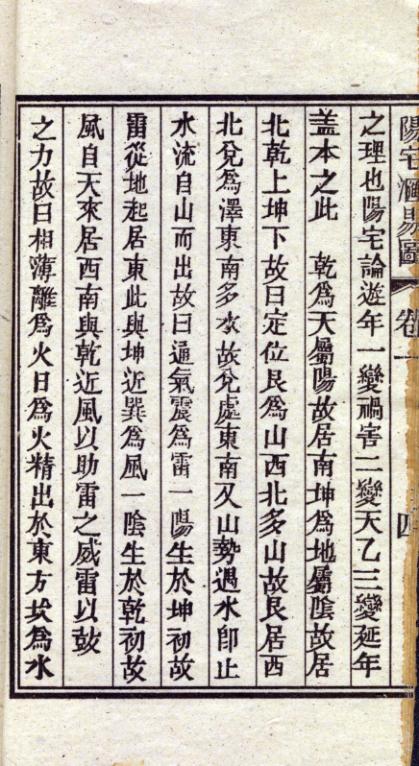 陽宅易圖 卷一 四
之理也陽宅論遊年一變禍害二變天乙三變延年
盖本之此 乾爲天屬陽故居南坤爲地屬陰故居
北乾上坤下故曰定位艮爲山西北多山故艮居西
北兌爲澤東南多水故兌處東南又山勢遇水卽止
水流自山而出故曰通氣震爲雷一陽生於坤初故
雷從地起居東此與坤近巽爲風一陰生於乾初故
風自天來居西南與乾近風以助雷之威雷以鼓
之力故曰相薄離爲火日爲火精出於東方坎爲水